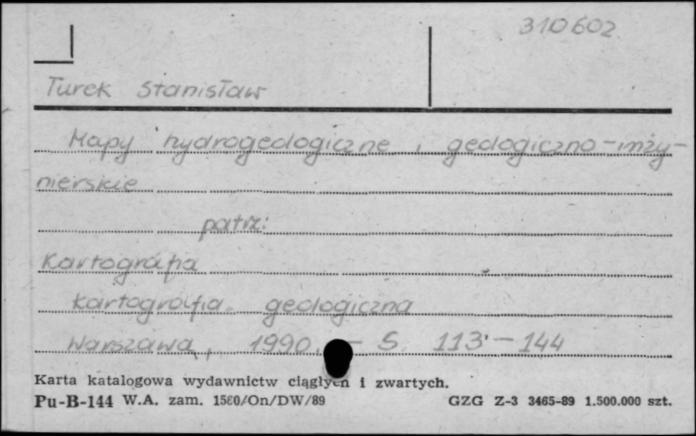 310602
Turek Stanisław
Mapy hydrogeologiczne i geologiczno-inży-
nierskie
patrz:
Kartografia
Kartografia geologiczna
Warszawa, 1990. - S. 113 - 144
Karta katalogowa wydawnictw ciągłych i zwartych.
Pu-B-144 W.A. zam. 1560/On/DW/89 GZG Z-3 3465-89 1.500.000 szt.